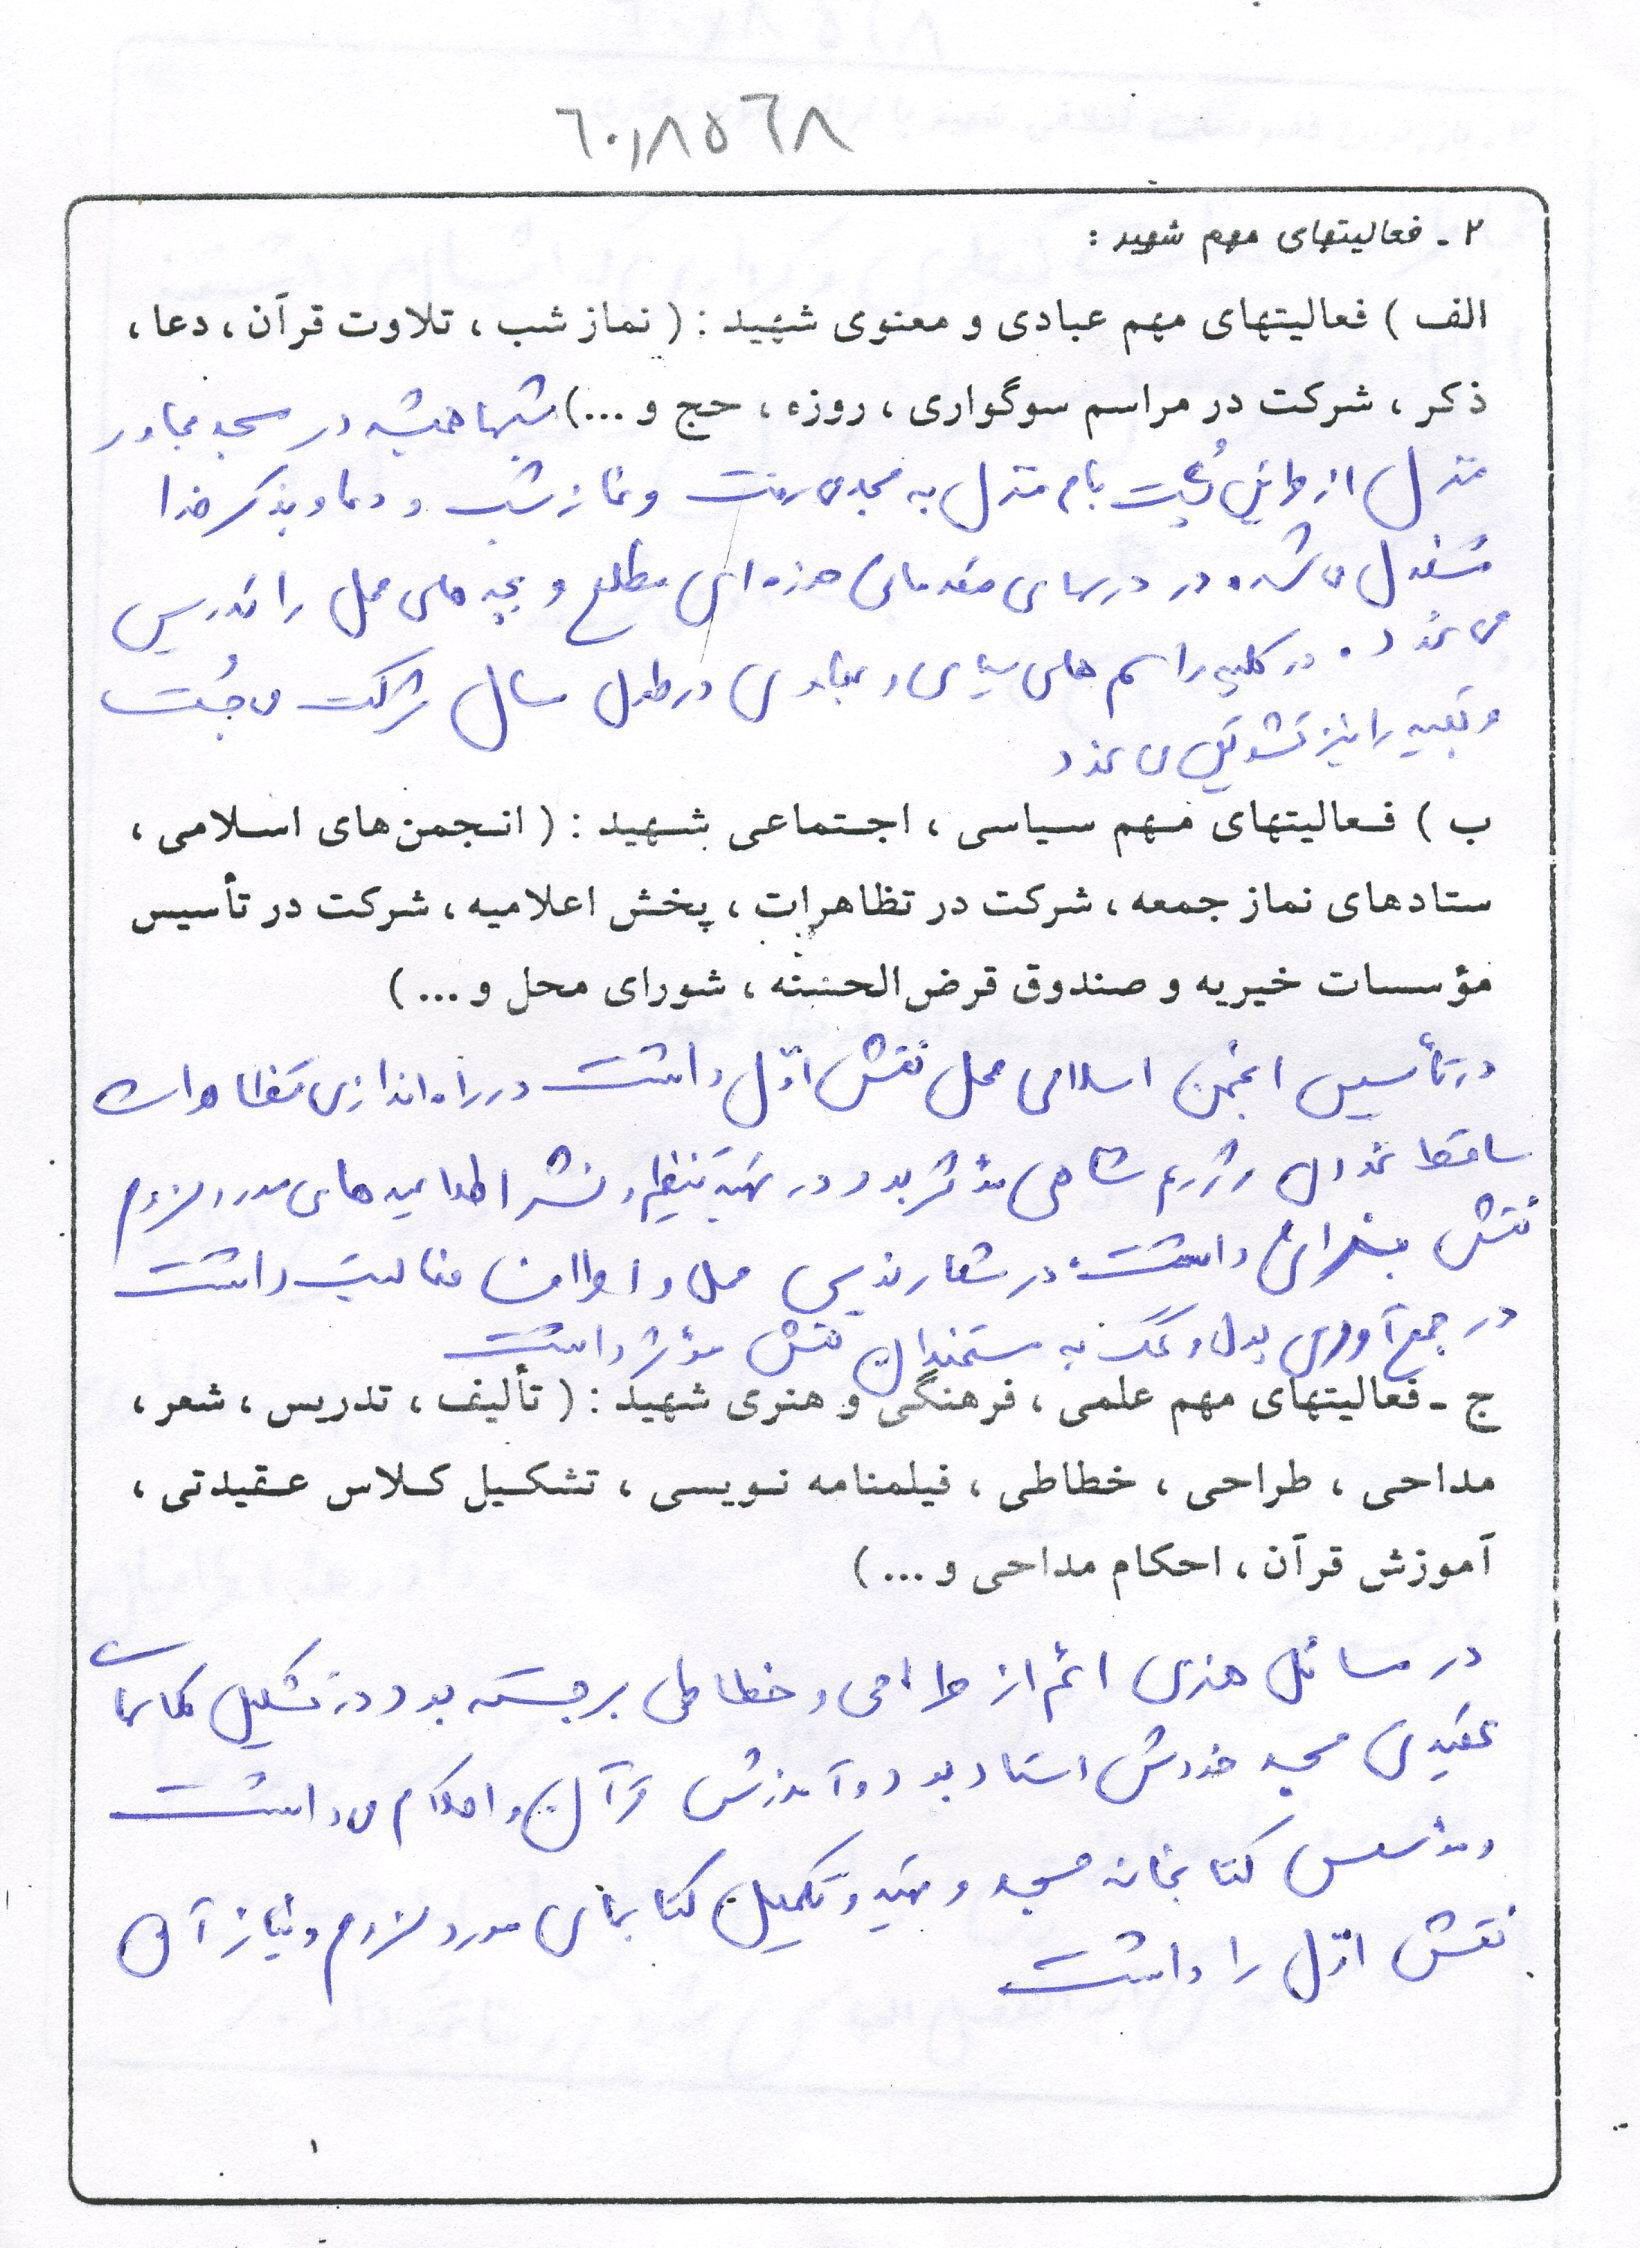 ۶۰۱۸۵۶۸
۲ - فعالیتهای مهم شهید :
الف ) فعالیتهای مهم عبادی و معنوی شهید : ( نماز شب ، تلاوت قرآن ، دعا ،
ذکر ، شرکت در مراسم سوگواری ، روزه ، حج و ... ) شبها همیشه در مسجد مجاور
منزل از طریق پشت بام منزل به مسجد می رفت و نماز شب و دعا و بذکر خدا
مشغول می شد . در درسهای مقدماتی حوزه ای مطلع و بچه های محل را تدریس
می نمود . در کلیه مراسم های سیاسی و عبادی در طول سال شرکت می جست
و بقیه را نیز تشویق می نمود
ب ) فعالیتهای مهم سیاسی ، اجتماعی شهید : ( انجمن های اسلامی ،
ستادهای نماز جمعه ، شرکت در تظاهرات ، پخش اعلامیه ، شرکت در تأسیس
مؤسسات خیریه و صندوق قرض الحسنه ، شورای محل و ... )
در تأسیس انجمن اسلامی محل نقش اوّل داشت در راه اندازی تظاهرات
ساقط نمودن رژیم شاهی مؤثر بود و در تهیه تنظیم و نشر اطلاعیه های مورد لزوم
نقش بسزائی داشت . در شعار نویسی محل و اطراف فعالیت داشت
در جمع آوری پول و کمک به مستمندان نقش مؤثر داشت
ج - فعالیتهای مهم علمی ، فرهنگی و هنری شهید : ( تألیف ، تدریس ، شعر ،
مداحی ، طراحی ، خطاطی ، فیلمنامه نویسی ، تشکیل کلاس عقیدتی ،
آموزش قرآن ، احکام مداحی و ... )
در مسائل هنری اعم از طراحی و خطاطی برجسته بود و در تشکیل کلاسهای
عقیدتی مسجد خودش استاد بود و آموزش قرآن و احکام می داشت
و مؤسس کتابخانه مسجد و تهیه و تکمیل کتابهای مورد لزوم و نیاز آن
نقش اوّل را داشت